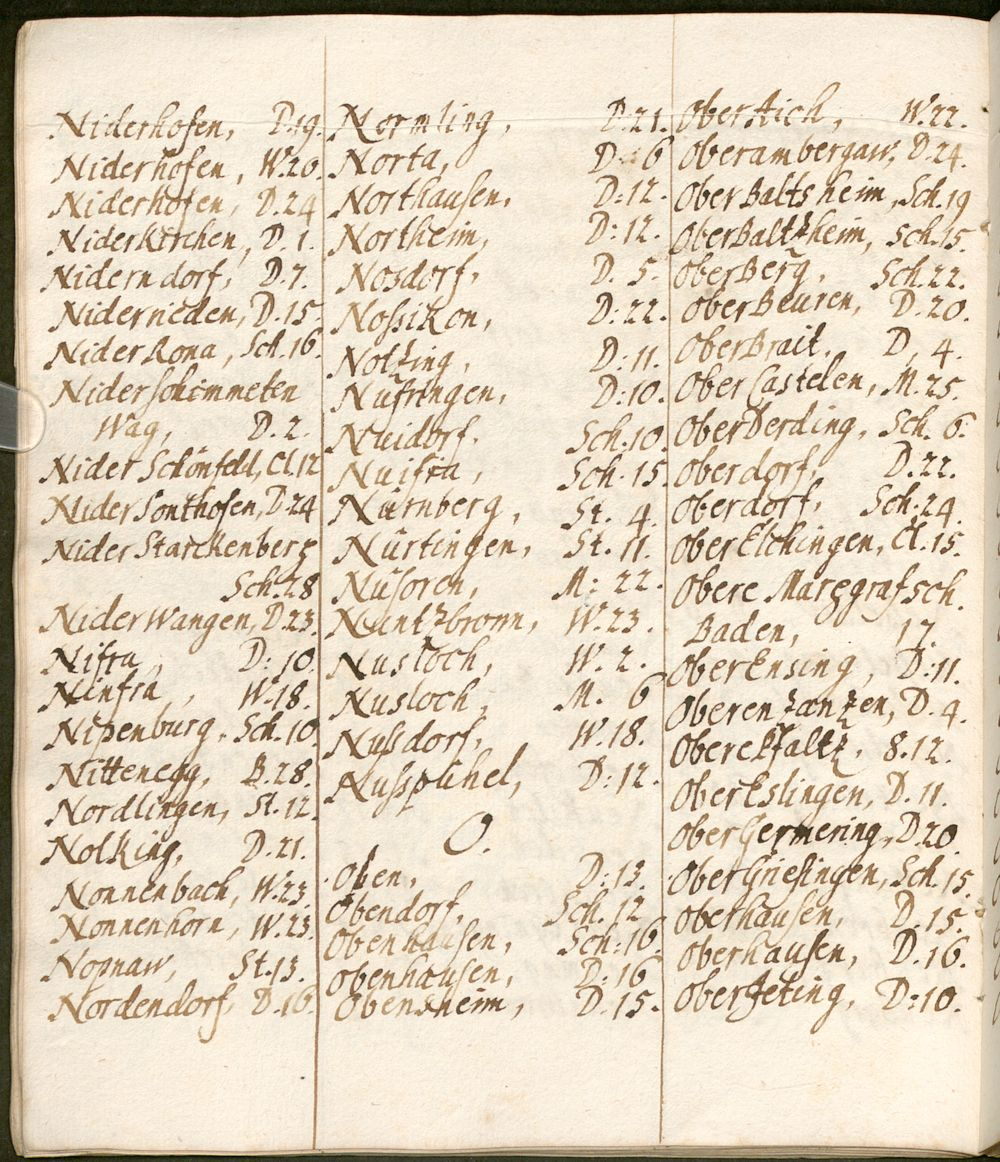 Niderhofen, D.19.
Niderhofen, W.20.
Niderhofen, D.24
Niderkirchen, D.1.
Niderndorf, D.7.
Niderrieden, D.15
NiderRona, Sch.16.
Niderschimmeten
Wag, D.2.
Nider Schönfeld, Cl.12
Nider Sonthofen, D.24
Nider Starckenberg
Sch.28
NiderWangen, D.23.
Nifra, D:10.
Ninfra, W.18.
Nipenburg, Sch.10.
Nittenegg, B.28.
Nordlingen, St.12.
Nolking, D.21.
Nonnenbach, W.23
Nonnenhorn, W.23.
Nopnaw, St.13.
Nordendorf, D.16.
Normling, D.21.
Norta, D.6
Northausen, D:12.
Northeim, D:12.
Nosdorf, D.5.
Nossikon, D:22.
Notzing, D:11.
Nufringen, D:10.
Nuidorf, Sch:10
Nuifra, Sch.15.
Nürnberg, St.4.
Nürtingen, St.11.
Nusoren, M:22.
Nuntzbronn, W.23.
Nusloch, W.2.
Nusloch, M.6
Nusdorf, W.18.
Nusspühel, D:12.
O.
Oben, D:13.
Obendorf, Sch.12
Obenhausen, Sch:16.
Obenhausen, D:16
Obensheim, D.15.
OberAich, W.22.
Oberambergaw, D.24.
OberBaltsheim, Sch.19
OberBaltzheim, Sch.15.
OberBerg, Sch.22.
OberBeuren, D.20.
OberBrait, D,4.
OberCastelen, M.25.
OberDerding, Sch.6.
Oberdorf, D.22.
Oberdorf, Sch.24.
OberElchingen, Cl.15.
Obere Marggrafsch.
Baden, 17.
OberEnsing, D:11.
Oberenzentzen, D.4.
OberePfaltz, 8.12.
OberEslingen, D.11.
OberGermering, D.20.
OberGriesingen, Sch.15.
Oberhausen, D.15.
Oberhausen, D.16.
OberJeting, D:10.